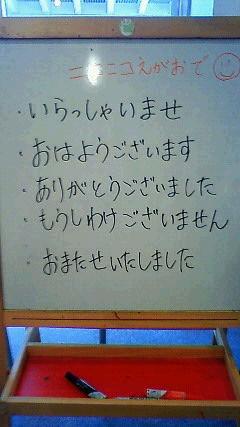 ニコニコえがおで
・いらっしゃいませ
・おはようございます
・ありがとうございました
・もうしわけございません
・おまたせいたしました